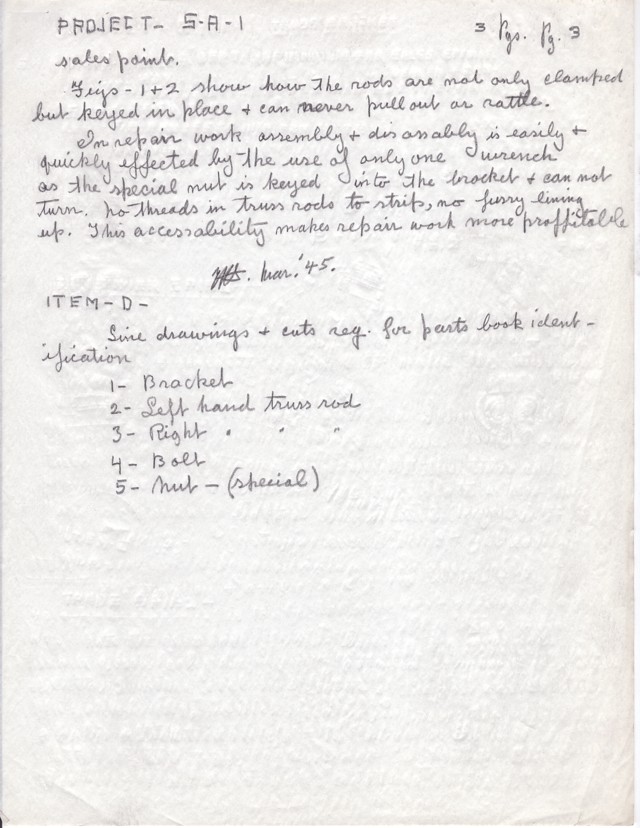 PROJECT- S-A-1
3 Pgs. Pg. 3
sales point.
Figs - 1+2 show how the rods are not only clamped
but keyed in place + can never pull out or rattle.
In repair work assembly + disassably is easily +
quickly effected by the use of only one wrench
as the special nut is keyed into the bracket + can not
turn. No threads in truss rods to strip, no fussy lining
up. This accessability makes repair work more proffitable
Mar. '45.
ITEM-D-
Line drawings + cuts req. for parts book ident-
ification
1- Bracket
2- Left hand truss rod
3- Right " " "
4- Bolt
5- Nut - (special)